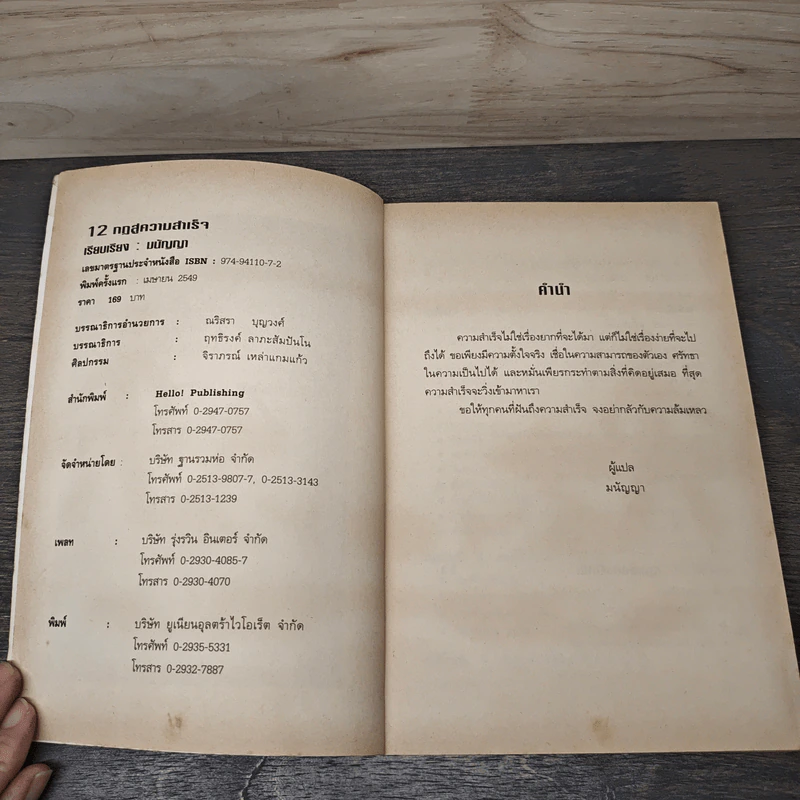 12 กฎสู่ความสำเร็จ
เรียบเรียง : มนัญญา
เลขมาตรฐานประจำหนังสือ ISBN : 974-94110-7-2
พิมพ์ครั้งแรก : เมษายน 2549
ราคา 169 บาท
บรรณาธิการอำนวยการ : ณริสรา บุญวงศ์
บรรณาธิการ : ฤทธิรงค์ ลาภะสัมปันโน
ศิลปกรรม : จิราภรณ์ เหล่าแกมแก้ว
สำนักพิมพ์ : Hello! Publishing
โทรศัพท์ 0-2947-0757
โทรสาร 0-2947-0757
จัดจำหน่ายโดย : บริษัท ฐานรวมห่อ จำกัด
โทรศัพท์ 0-2513-9807-7, 0-2513-3143
โทรสาร 0-2513-1239
เพลท : บริษัท รุ่งรวิน อินเตอร์ จำกัด
โทรศัพท์ 0-2930-4085-7
โทรสาร 0-2930-4070
พิมพ์ : บริษัท ยูเนียนอุลตร้าไวโอเร็ต จำกัด
โทรศัพท์ 0-2935-5331
โทรสาร 0-2932-7887
คำนำ
ความสำเร็จไม่ใช่เรื่องยากที่จะได้มา แต่ก็ไม่ใช่เรื่องง่ายที่จะไป
ถึงได้ ขอเพียงมีความตั้งใจจริง เชื่อในความสามารถของตัวเอง ศรัทธา
ในความเป็นไปได้ และหมั่นเพียรกระทำตามสิ่งที่คิดอยู่เสมอ ที่สุด
ความสำเร็จจะวิ่งเข้ามาหาเรา
ขอให้ทุกคนที่ฝันถึงความสำเร็จ จงอย่ากลัวกับความล้มเหลว
ผู้แปล
มนัญญา